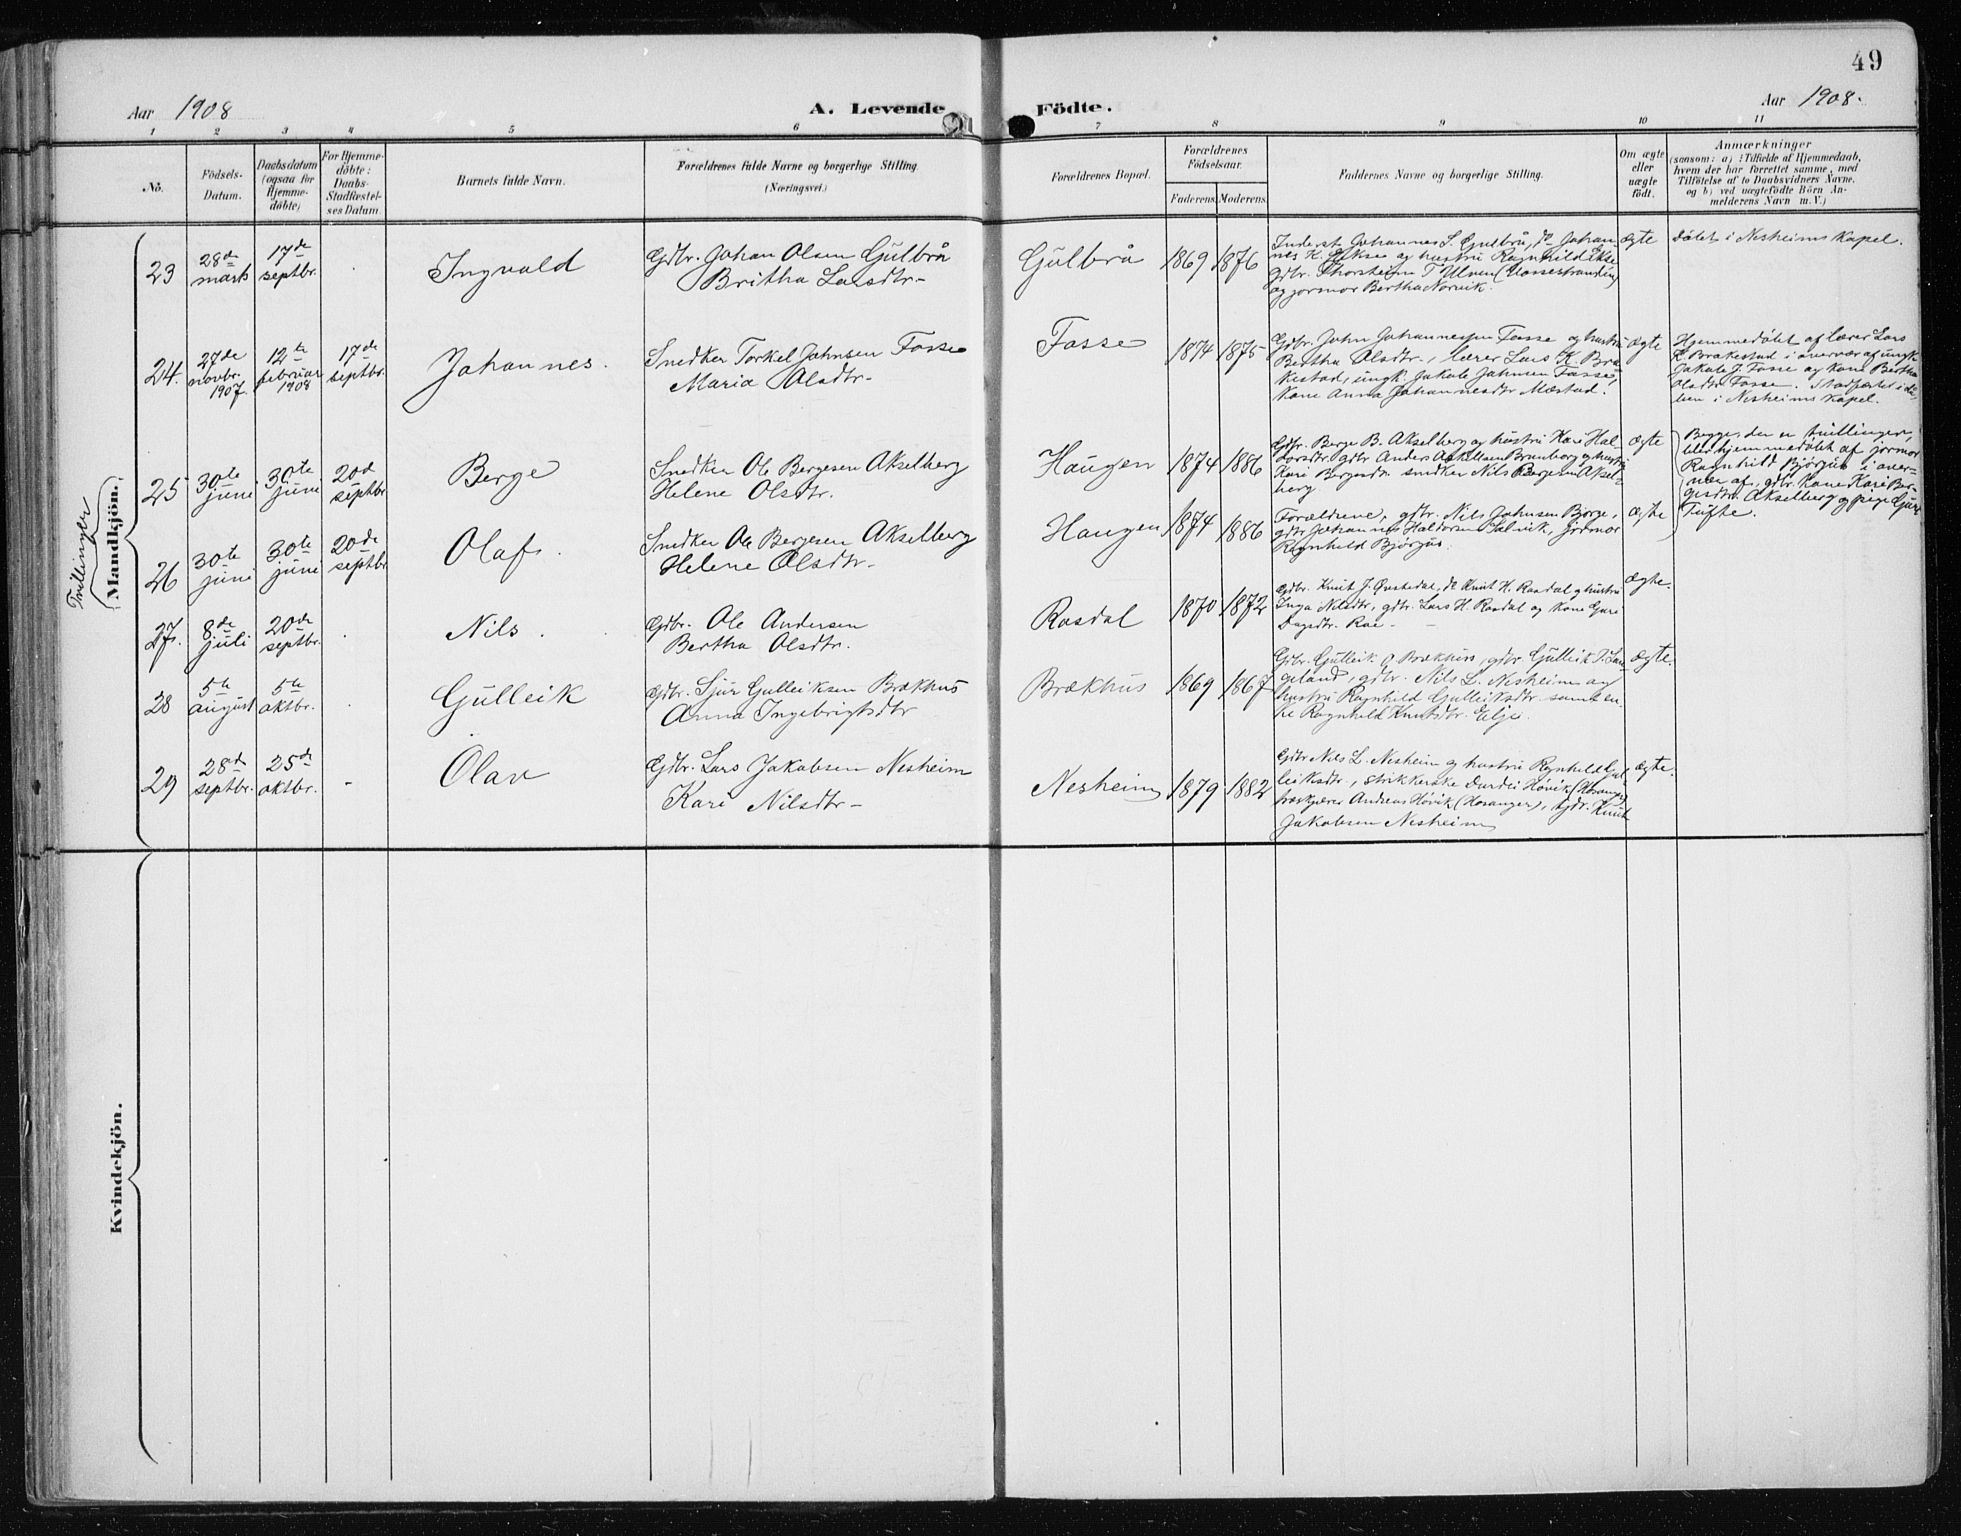 49
Aar 1908
A. Levende
Födte.
Aar 1908.
1 2 3 4 5 6 7 8 9 10 11
No.
Födsels-
Datum.
Daabsdatum
(ogsaa for
Hjemme-
döbte)
For Hjemme-
döbte:
Daabs-
Stadfæstel-
ses Datum
Barnets fulde Navn.
Forældrenes fulde Navne og borgerlige Stilling.
(Næringsvei.)
Forældrenes Bopæl.
Forældrenes
Födselsaar.
Faderens.
Moderens.
Faddernes Navne og borgerlige Stilling.
Om ægte
eller
uægte
födt.
Anmærkninger
(saasom: a) i Tilfælde af Hjemmedaab,
hvem der har forrettet samme, med
Tilföielse af to Daabsvidners Navne.
og b) ved uægtefödte Börn An-
melderens Navn m. V.)
Mandkjön.
Trillinger
23
28de
marts
17de
septbr.
Ingvald
Gdbr. Johan Olsen Gülbrå
Britha Larsdtr.
Gülbrå
1869
1876
Inderst Johannes S. Gulbrå, do Johan-
nes H. og hustru Ragnhild
gdbr. Thorsheim T. Ulven (Vossestranden)
og jormor Bertha Norvik.
ægte
Døbt i Nesheims kapel.
24.
27de
novbr.
1907.
12te
februar
1908
17de
septbr.
Johannes.
Snedker Torkel Johnsen Fosse
Maria Olsdtr.
Fosse
1874
1875
Gdbr. John Johannessen Fosse og hustru
Bertha Olsdtr., lærer Lars K. Bra-
kestad, ungk. Jakob Johnsen Fosse,
kone Anna Johannesdtr Mæstad.
ægte
Hjemmedøbt af lærer Lars
K. Brakestad i overvær af ungk.
Jakob J. Fosse og kone Bertha
Olsdtr. Fosse. Stadfæstet i
i Nesheims kapel.
25
30te
juni
30te
juni
20de
septbr
Berge
Snedker Ole Bergesen Akselberg
Helene Olsdtr.
Haugen
1874
1886
Gdbr. Berge B. Akselberg og hustru Kari Hal-
dorsdtr. gdbr Anders og hustru
Kari Bergesdtr. snedker Nils Bergesen Aksel-
berg
ægte
Begge, der er trillinger,
blev hjemmedøbt af jormor
Ragnhild Bjørgås i over-
vær af, gdbr. kone Kari Ber-
gesdtr. Akselberg og pige
Tufte.
26
30te
juni
30te
juni
20de
septbr.
Olaf.
Snedker Ole Bergesen Akselberg
Helene Olsdtr.
Haugen
1874
1886
Forældrene, gdbr. Nils Johnsen Børge,
gdbr Johannes Haldorsen jormor
Ragnhild Bjørgås.
ægte
27.
8de
juli
20de
septbr.
Nils.
Gdbr. Ole Andersen
Bertha Olsdtr.
Rasdal
1870
1872
Gdbr. Knut J. Øvstedal, do Knut H. Rasdal og hustru
Inga Nilsdtr, gdbr. Lars H. Rasdal og kone
Dagsdtr.
ægte.
28
5te
august
5te
oktbr.
Gülleik
Gdbr. Sjur Gulleiksen Brækhus
Anna Ingebrigtsdtr
Brækhus
1869
1867
Gdbr. Gülleik O. Brækhus, gdbr. Gülleik
gdbr. Nils L. Nesheim og
hustru Ragnhild Gulleiksdtr. samt en-
ke Ragnhild Knutsdtr.
ægte.
29
28de
septbr.
25de
oktbr.
Olav
Gdbr. Lars Jakobsen Nesheim
Kari Nilsdtr.
Nesheim
1879
1882
Gdbr Nils L. Nesheim og hustru Ragnhild Gul-
leiksdtr., Høvik (Hosanger)
Andreas Høvik (Hosanger), gdbr. Knut
Jakobsen Nesheim
ægte.
Kvindekjön.